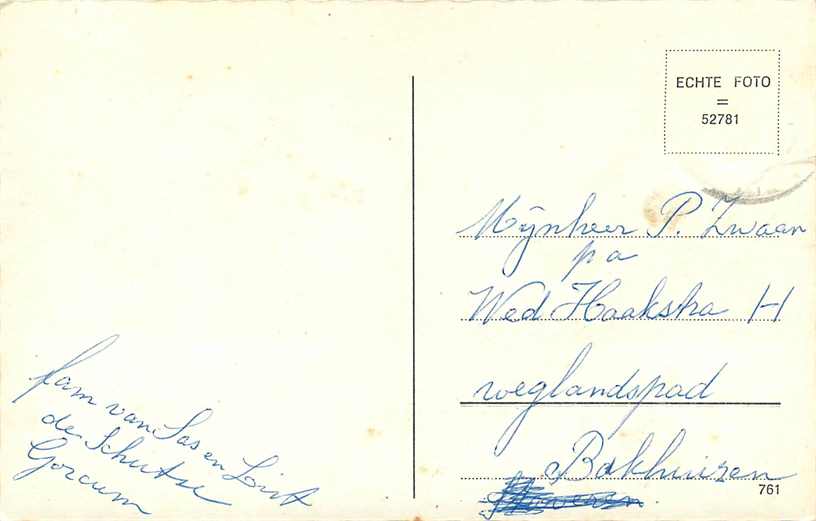 ECHTE FOTO
=
52781
Mijnheer P. Zwaan
pa
Wed Haakstra H
weglandspad
Bakhuizen
761
fam van Sas en
de Schutse
Gorcum